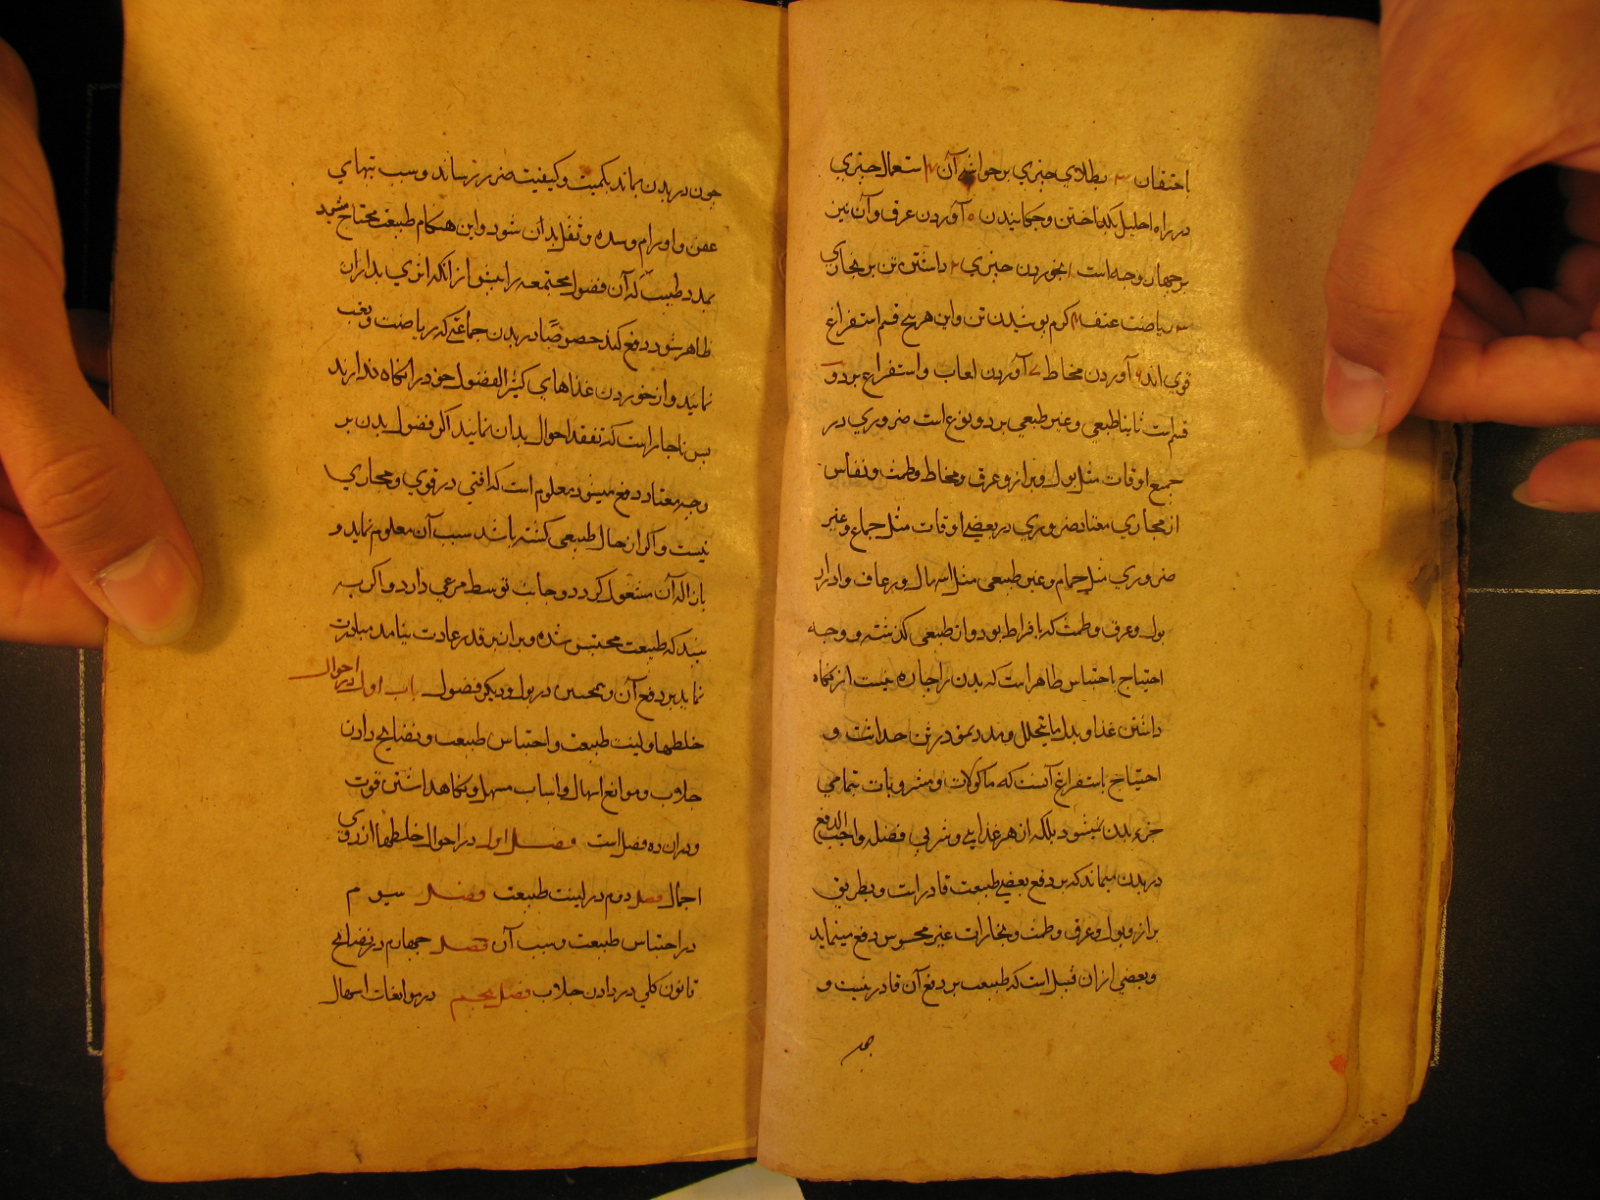 احتقان ۳ بطلای چیزی بر حوالی آن ۴ استعمال چیزی
در راه احلیل بگداختن و چکانیدن ۵ آوردن عرق و آن نیز
بر چهار وجه است ۱ بخوردن چیزی ۲ داشتن تن بر بخاری
۳ ریاضت عنف ۴ گرم پوشیدن تن و این هر پنج قسم استفراغ
قوی اند ۶ آوردن مخاط ۷ آوردن لعاب و استفراغ بر دو
قسم است ثانیا طبیعی و غیر طبیعی بر دو نوع است ضروری در
جمیع اوقات مثل بول و براز و عرق و مخاط و طمث و نفاس
از مجاری معتاد ضروری در بعضی اوقات مثل جماع و غیر
ضروری مثل حمام و غیر طبیعی مثل اسهال و رعاف و ادرار
بول و عرق و طمث که بافراط بود و از طبیعی گذشته و وجه
احتیاج باحتباس ظاهر است که بدن را چاره نیست از نگاه
داشتن غذا و بدل ما یتحلل و مدد نمو در سن حداثت و
احتیاج باستفراغ آنست که ماکولات و مشروبات بتمامی
جزء بدن نمیشود بلکه از هر غذایی و شربی فضله واجب الدفع
در بدن میماند که بر دفع بعضی طبیعت قادر است و بطریق
براز و بول و عرق و طمث و بخارات غیر محسوس دفع مینماید
و بعضی ازان قبیل است که طبیعت بر دفع آن قادر نیست و
چون در بدن بماند بکمیت و کیفیت ضرر رساند و سبب تبهای
عفن و اورام و سده و ثقل بدان شود و این هنگام طبیعت محتاج شود
بمدد طبیب که آن فضول مجتمعه را پیش از آنکه اثری بد ازان
ظاهر شود دفع کند خصوصًا در بدن جماعتی که ریاضت و تعب
نمایند و از خوردن غذاهای کثیر الفضول خود را نگاه ندارند
پس ناچار است که تفقد احوال بدان نمایند اگر فضول بدن بر
وجه معتاد دفع میشود معلوم است که آفتی در قوی و مجاری
نیست و اگر از حال طبیعی گشته باشد سبب آن معلوم نماید و
بازاله آن مشغول گردد و جانب توسط مرعی دارد و اگر به
بیند که طبیعت محتبس شده و براز بر قدر عادت نیامد مبادرت
نماید بر دفع آن و همچنین در بول و دیگر فضول باب اول در احوال
خلطها و لینت طبیعت و احتباس طبیعت و نضایج دادن
جلاب و موانع اسهال و اسباب مسهل و نگاهداشتن قوت
و دران ده فصل است فصل اول در احوال خلطها از روی
اجمال فصل دوم در لینت طبیعت فصل سیوم
در احتباس طبیعت و سبب آن فصل چهارم در نضایج
قانون کلی در دادن جلاب فصل پنجم در موانعات اسهال